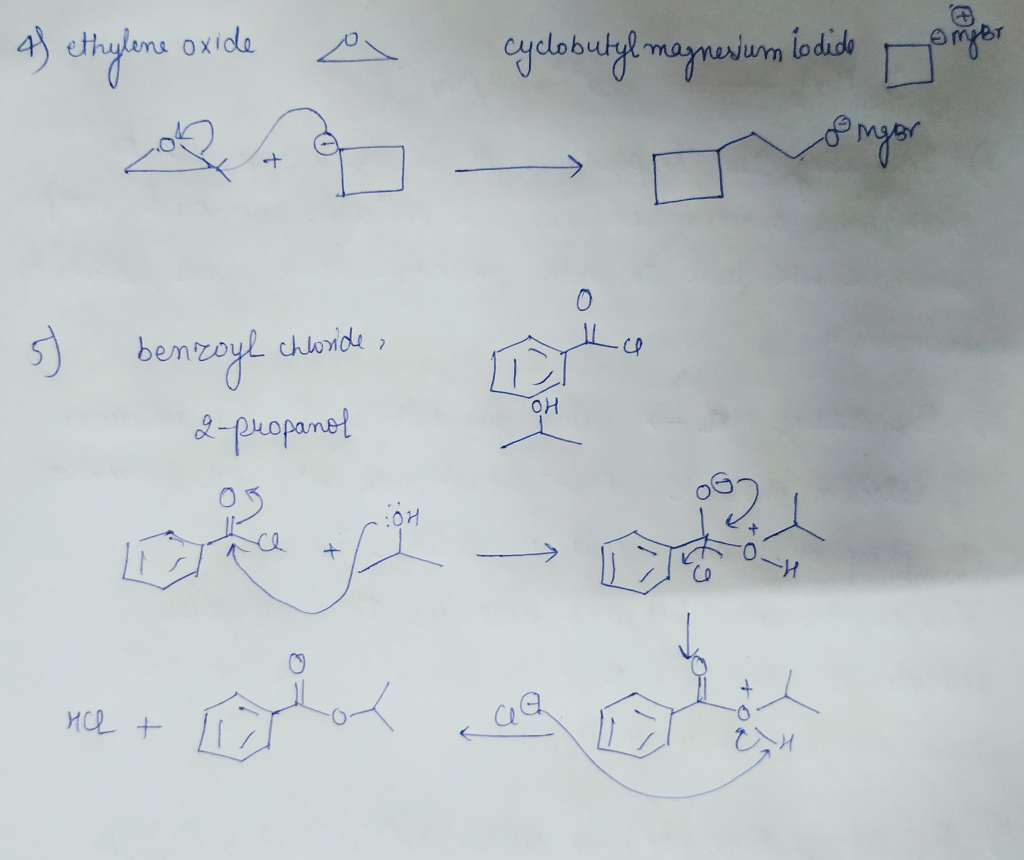 4) ethylene oxide O cyclobutylmagnesium iodide ⊖ ⊕ MgBr
O + ⊖ O⊖ MgBr
5) benzoyl chloride, O Cl
2-propanol OH
O Cl + :ÖH O⊖ Cl + O H
HCl + O O Cl⊖ O + O H